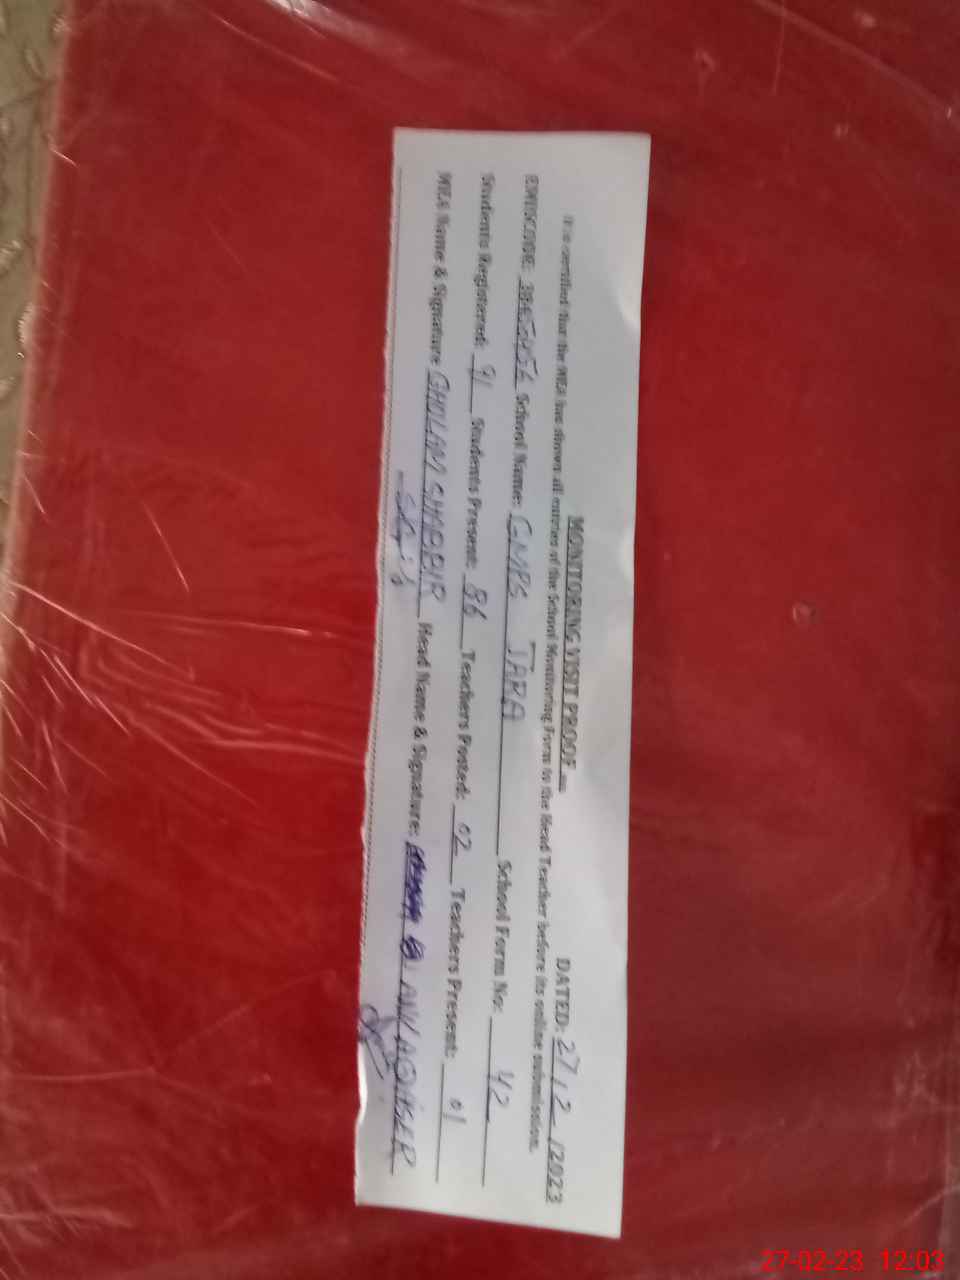 MONITORING VISIT PROOF DATED: 27/2/2023
It is certified that the MEA has shown all entries of the School Monitoring Form to the Head Teacher before its online submission.
EMISCODE: School Name: GMPS TARA School Form No: 42
Students Registered: 91 Students Present: 86 Teachers Posted: 02 Teachers Present: 01
MEA Name & Signature GHULAM SHABBIR Head Name & Signature:
27-02-23 12:03